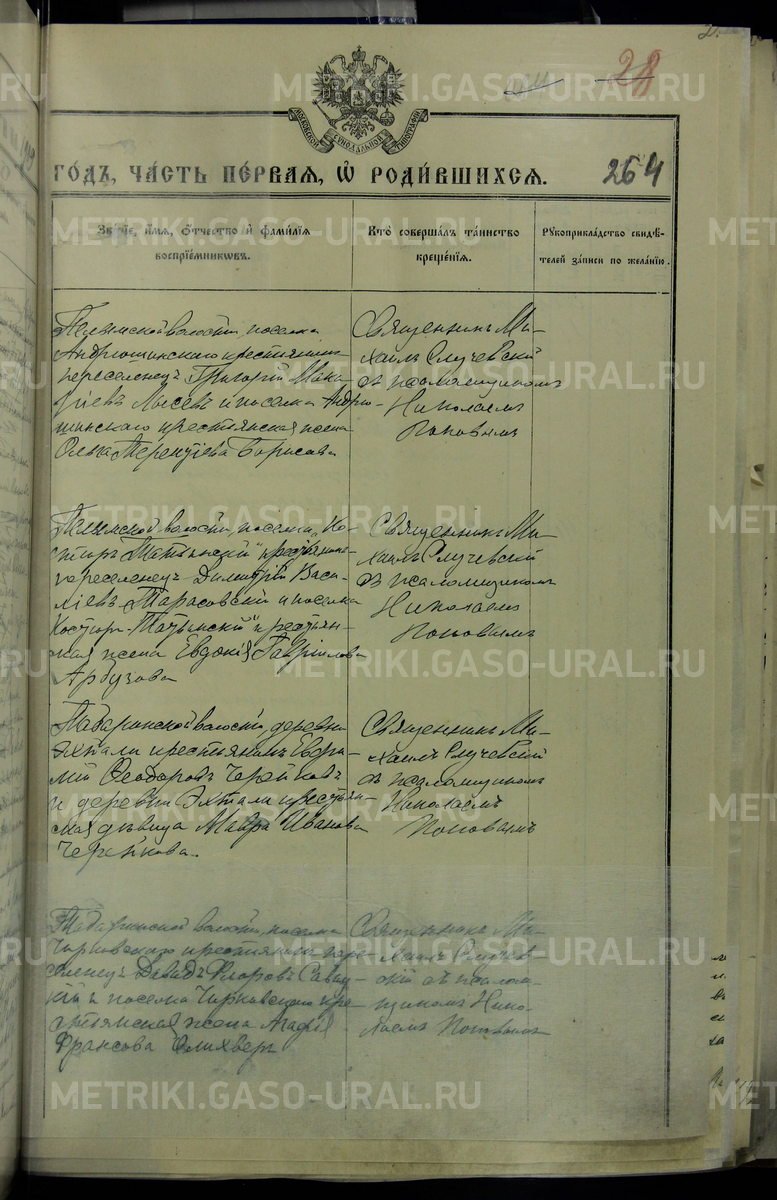 28
МОСКОВСКОЙ СѴНОДАЛЬНОЙ ТИПОГРАФІИ
ГОДЪ, ЧАСТЬ ПЕРВАЯ, Ѡ РОДИВШИХСЯ.
264
Званіе, имя, отчество и фамилія
воспріемниковъ.
Кто совершалъ таинство
крещенія.
Рукоприкладство свидѣ-
телей записи по желанію.
Пелымской волости поселка
Андрюшинскаго крестьянинъ
переселенецъ Григорій Мака-
ріевъ Лысевъ и поселка Андрю-
шинскаго крестьянская жена
Ольга Терентіева Борисова
Священникъ Ми-
хаилъ Случевскій
съ псаломщикомъ
Николаемъ
Поповымъ
Пелымской волости, поселка „Ко-
стыръ Татынскій" крестьянинъ
переселенецъ Димитрій Васи-
ліевъ Тарасовскій и поселка
Костыръ-Татынскій" крестьян-
ская жена Евдокія Гавріилова
Арбузова
Священникъ Ми-
хаилъ Случевскій
съ псаломщикомъ
Николаемъ
Поповымъ
Табаринской волости, деревни
Эхтали крестьянинъ Евфи-
мій Феодоровъ Черейковъ
и деревни Эхтали крестьян-
ская дѣвица Мавра Иванова
Черейкова.
Священникъ Ми-
хаилъ Случевскій
съ псаломщикомъ
Николаемъ
Поповымъ
Табаринской волости, поселка
Чирковскаго крестьянинъ пере-
селенецъ Давидъ Егоровъ Савиц-
кій и поселка Чирковскаго кре-
стьянская жена Агафія
Франсова
Священникъ Ми-
хаилъ Случев-
скій съ псалом-
щикомъ Нико-
лаемъ Поповымъ
METRIKI.GASO-URAL.RU